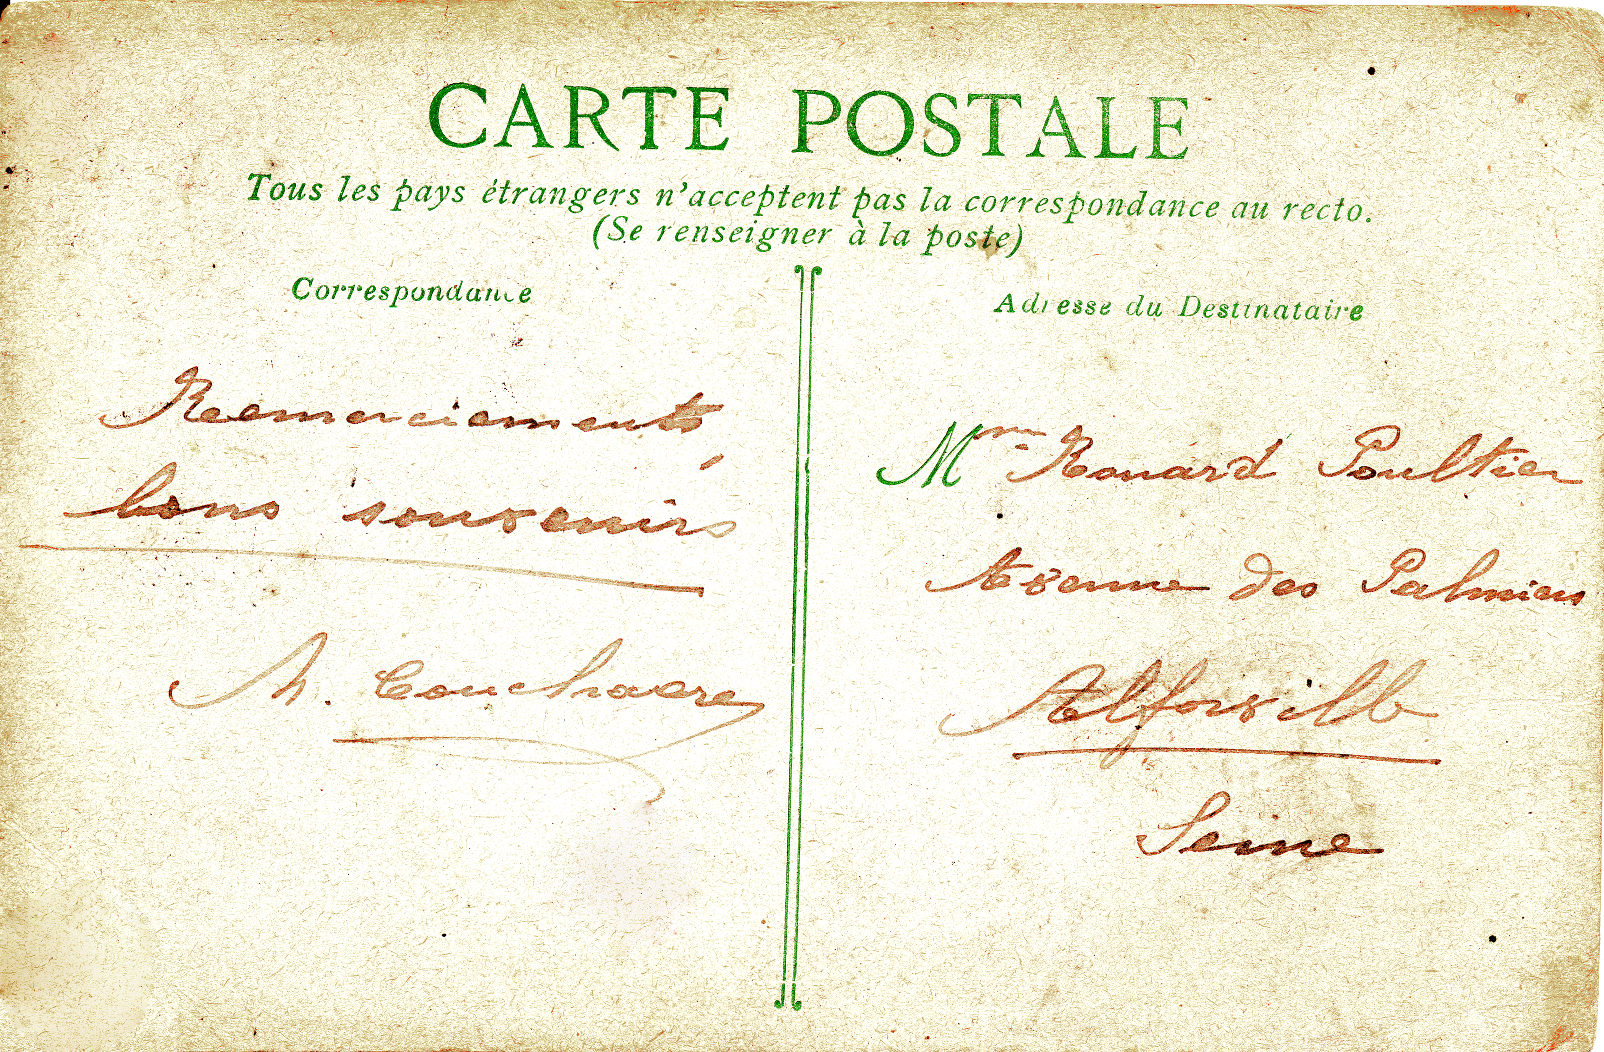 CARTE POSTALE
Tous les pays étrangers n'acceptent pas la correspondance au recto.
(Se renseigner à la poste)
Correspondance
Remerciements
bons souvenirs
Adresse du Destinataire
Mme Renard Poultier
Avenue des Palmiers
Alforville
Seine